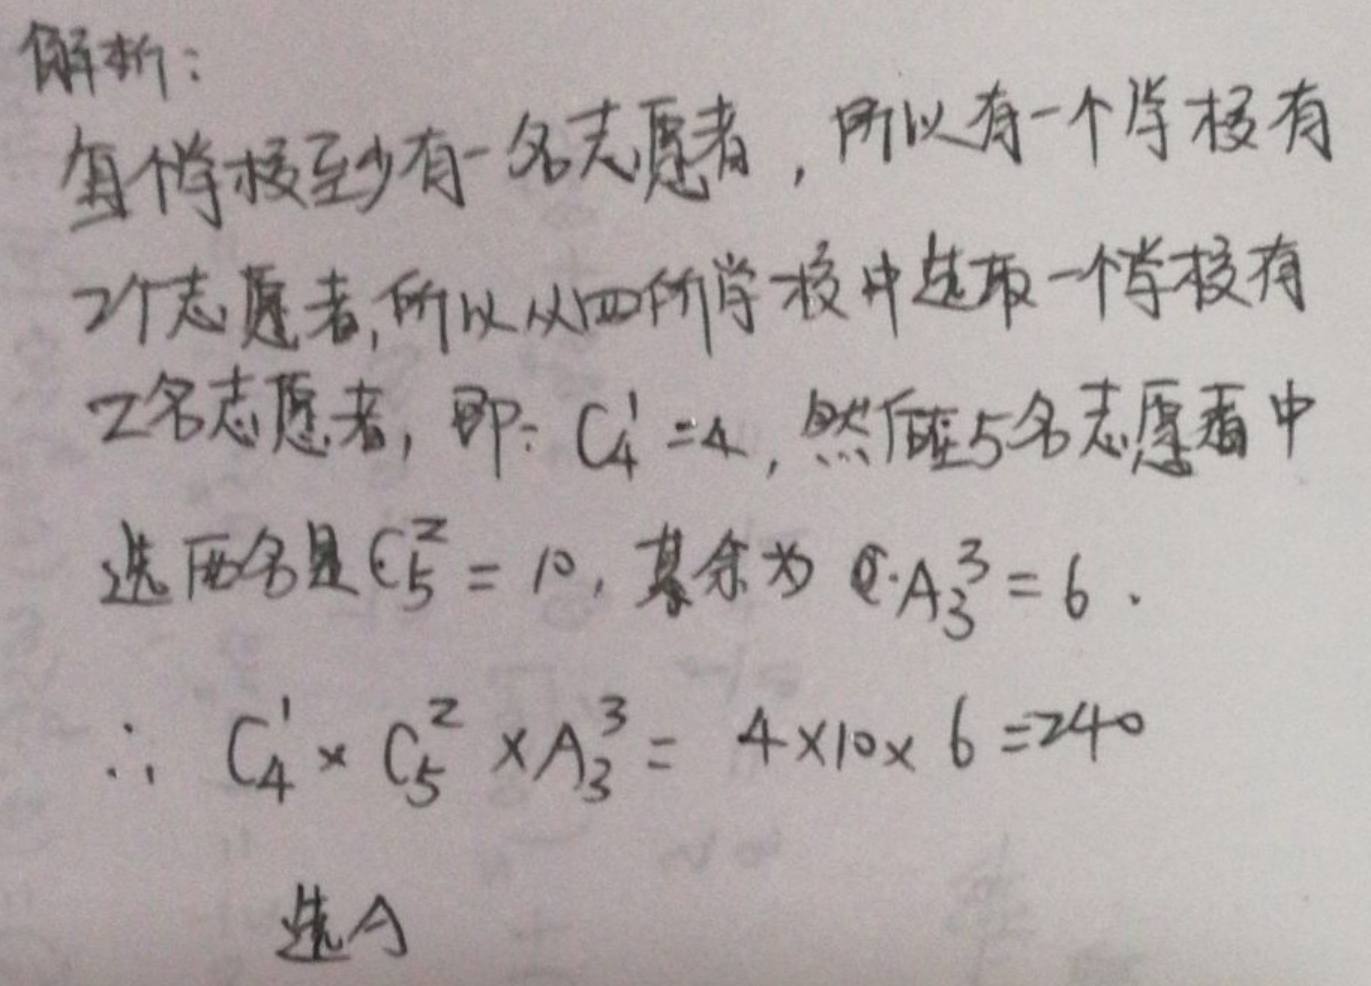 解析:
每个学校至少有一名志愿者,所以有一个学校有
2个志愿者,所以从四所学校中选取一个学校有
2名志愿者,即: C₄¹=4,然后在5名志愿者中
选两名是C₅²=10,其余为 A₃³=6.
∴ C₄¹×C₅²×A₃³= 4×10×6=240
选A